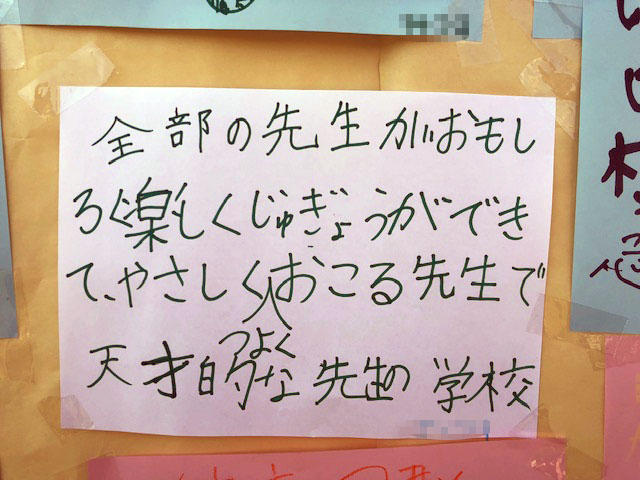 全部の先生がおもし
ろく楽しくじゅぎょうができ
て、やさしくおこる先生で
つよく
天才的な先生の学校